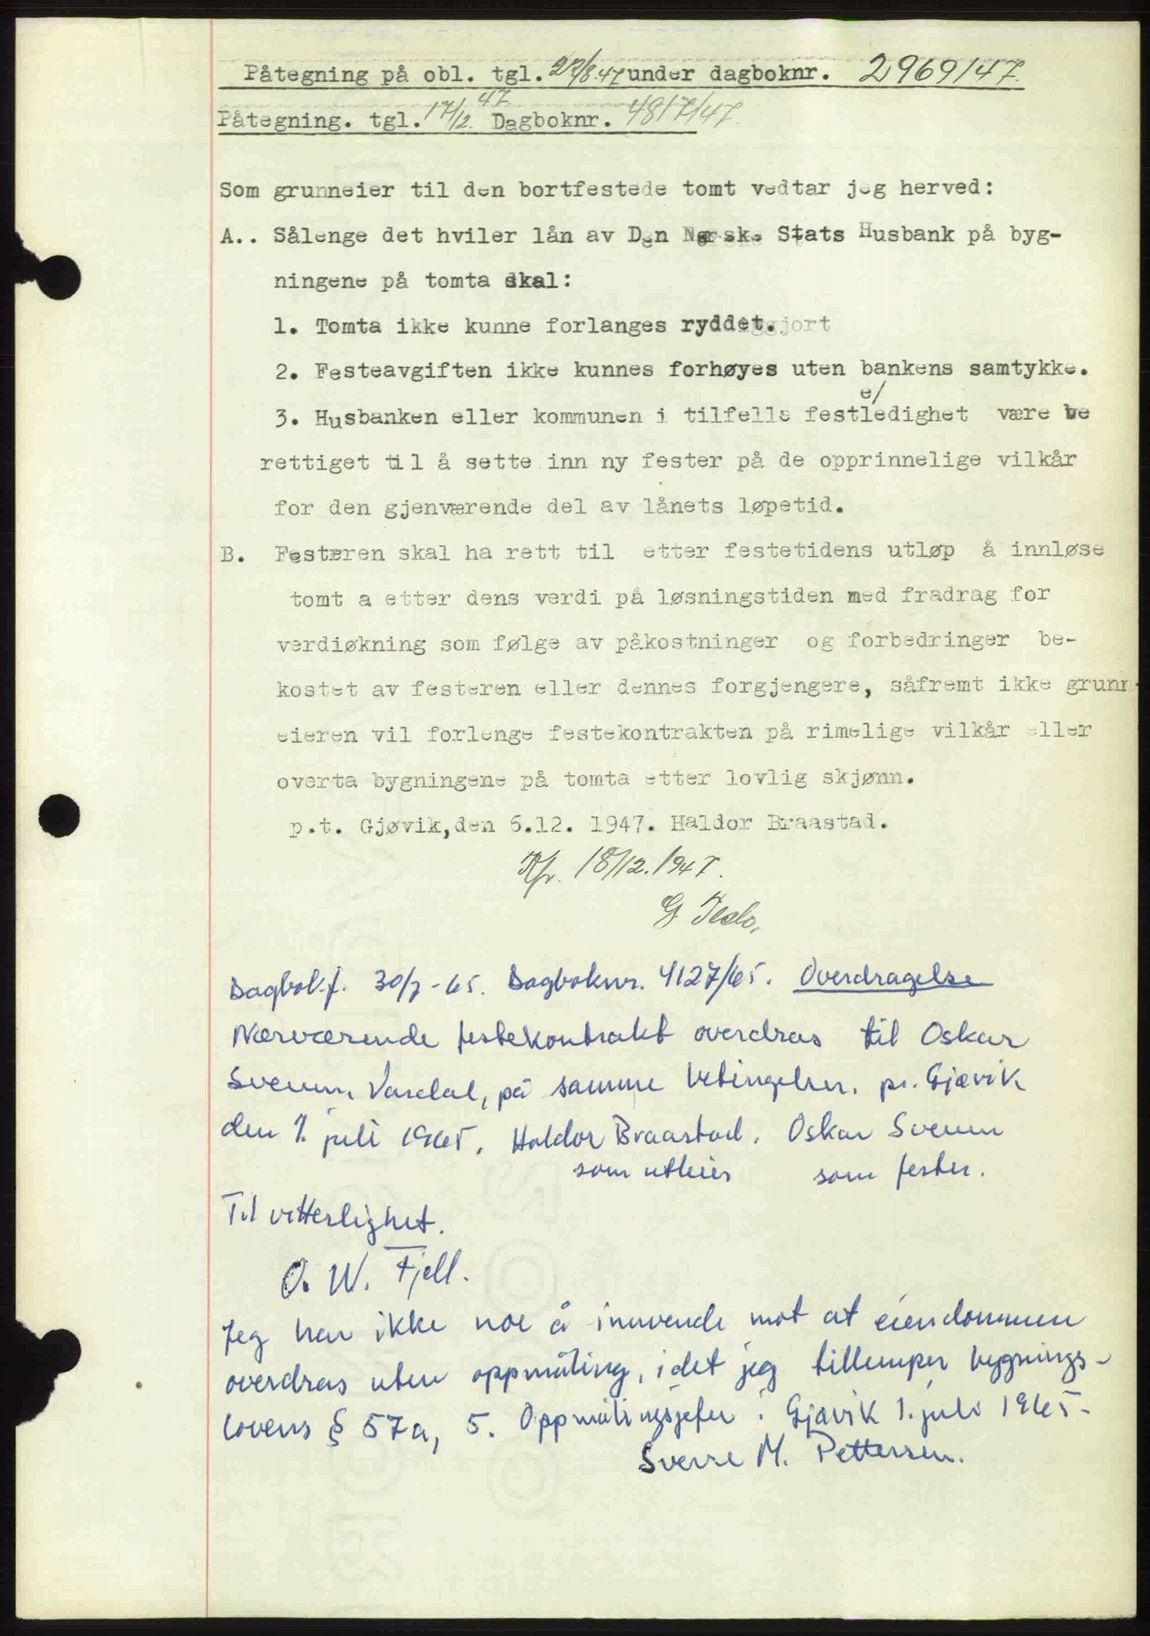 Påtegning på obl. tgl. 27/8.47 under dagboknr. 2969/47.
Påtegning. tgl. 17/12.47 Dagboknr. 4817/47
Som grunneier til den bortfestede tomt vedtar jeg herved:
A.. Sålenge det hviler lån av Den Norske Stats Husbank på byg-
ningene på tomta skal:
1. Tomta ikke kunne forlanges ryddet.
2. Festeavgiften ikke kunnes forhøyes uten bankens samtykke.
3. Husbanken eller kommunen i tilfelle festeledighet være be
rettiget til å sette inn ny fester på de opprinnelige vilkår
for den gjenværende del av lånets løpetid.
B. Festeren skal ha rett til etter festetidens utløp å innløse
tomt a etter dens verdi på løsningstiden med fradrag for
verdiøkning som følge av påkostninger og forbedringer be-
kostet av festeren eller dennes forgjengere, såfremt ikke grunn-
eieren vil forlenge festekontrakten på rimelige vilkår eller
overta bygningene på tomta etter lovlig skjønn.
p.t. Gjøvik, den 6.12. 1947. Haldor Braastad.
18/12.1947.
G
Dagbokf. 30/7-65. Dagboknr. 4127/65. Overdragelse
Nærværende festekontrakt overdras til Oskar
Sveum, Vardal, på samme betingelser. pr. Gjøvik
den 1. juli 1965. Haldor Braastad. Oskar Sveum
som utleier som fester.
Til vitterlighet.
O. W. Fjell.
Jeg har ikke noe å innvende mot at eiendommen
overdras uten oppmåling, idet jeg tillemper bygnings-
lovens § 57a, 5. Oppmålingsjefen i Gjøvik 1. juli 1965-
Sverre M. Pettersen.